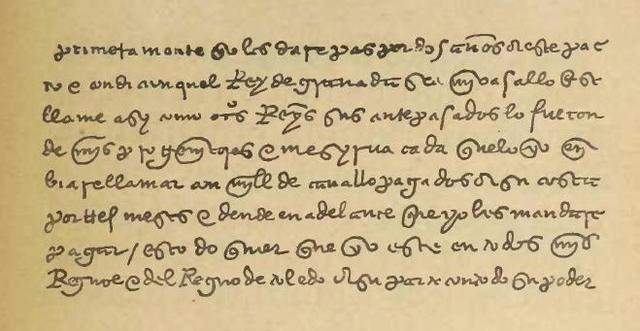 primeramente que les dare pas por dos años deste pac
to e condicion quel Rey de granada sea mi vasallo e se
llame asy como otros Reyes sus antepasados lo fueron
de mis progenitores e me syrua cada quelo yo en
biare llamar con mill de cauallo pagados de su costa
por tres meses e dende en adelante que yo les mandare
pagar / esto do quier que yo este en todos mis
Regnos e del Regno de toledo de su parte con todo su poder